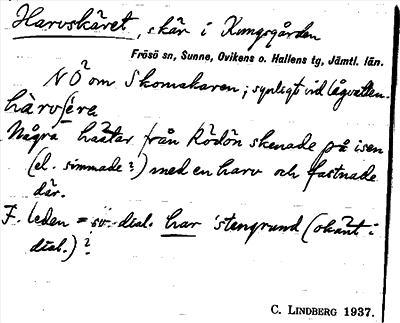 Harvskäret, skär i Kungsgården
Frösö sn, Sunne, Ovikens o. Hallens tg, Jämtl. län.
NÖ om Skomakaren; synligt vid lågvatten.
Några hästar från Rödön skenade på isen
(el. simmade?) med en harv och fastnade
där.
F. leden = sv. dial. har 'stengrund' (okänt i
dial.)?
C. LINDBERG 1937.